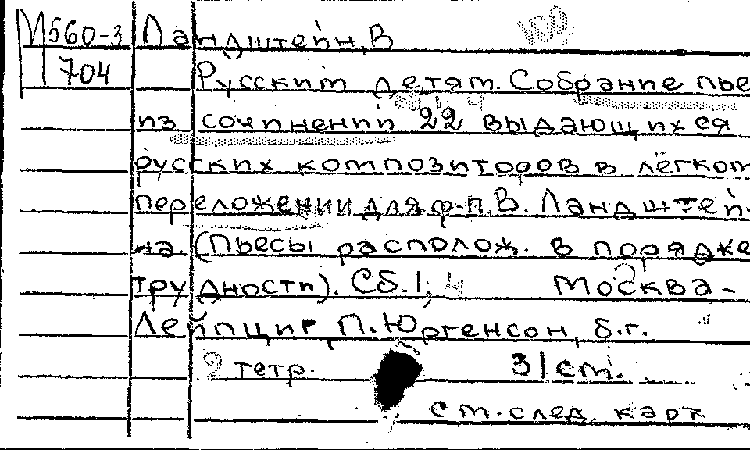 М560-3 Ландштейн, В
704 Русским детям. Собрание пье
из сочинений 22 выдающихся
русских композиторов в лёгком
переложении для ф-п. В. Ландштей-
на. (Пьесы располож. в порядке
трудности). Сб. 1, 4 Москва-
Лейпциг, П. Юргенсон, б.г.
2 тетр. 31 см.
см. след. карт